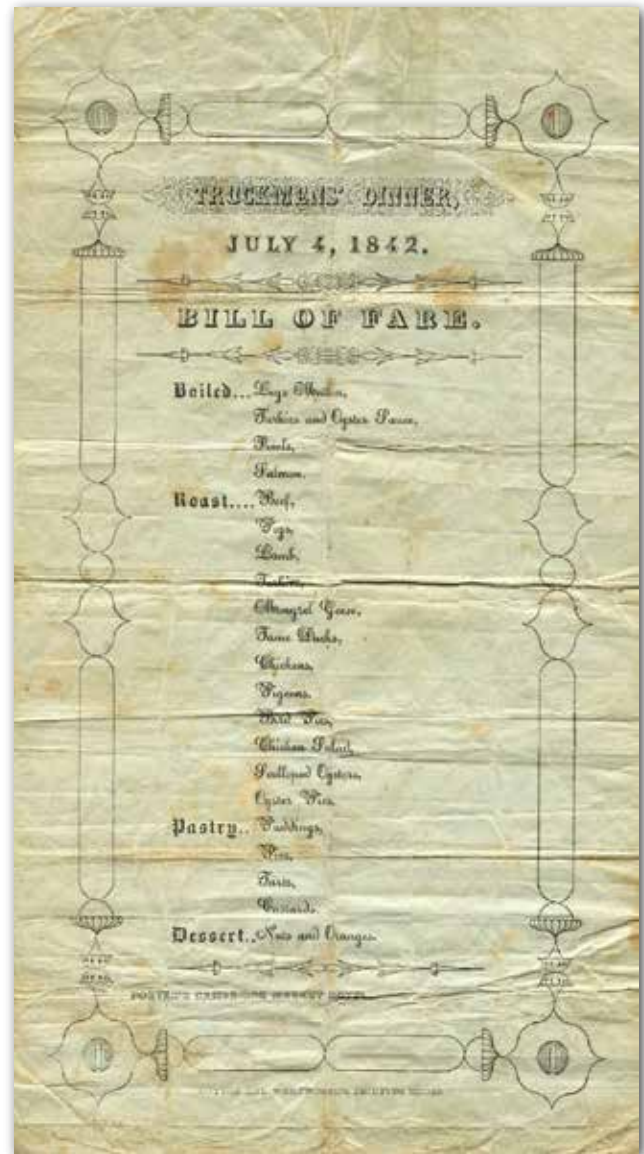 TRUCKMENS' DINNER,
JULY 4, 1842.
BILL OF FARE.
Boiled... Legs Mutton,
Turkies and Oyster Sauce,
Fowls,
Salmon.
Roast.... Beef,
Pigs,
Lamb,
Turkies,
Mongrel Geese,
Tame Ducks,
Chickens,
Pigeons.
Bird Pies,
Chicken Salad,
Scalloped Oysters,
Oyster Pies.
Pastry.. Puddings,
Pies,
Tarts,
Custards.
Dessert.. Nuts and Oranges.
PORTER'S CAMBRIDGE MARKET HOTEL
PRINTING HOUSE